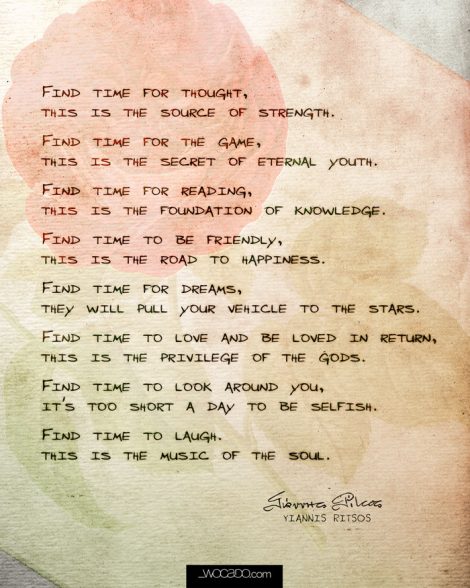 FIND TIME FOR THOUGHT,
THIS IS THE SOURCE OF STRENGTH.
FIND TIME FOR THE GAME,
THIS IS THE SECRET OF ETERNAL YOUTH.
FIND TIME FOR READING,
THIS IS THE FOUNDATION OF KNOWLEDGE.
FIND TIME TO BE FRIENDLY,
THIS IS THE ROAD TO HAPPINESS.
FIND TIME FOR DREAMS,
THEY WILL PULL YOUR VEHICLE TO THE STARS.
FIND TIME TO LOVE AND BE LOVED IN RETURN,
THIS IS THE PRIVILEGE OF THE GODS.
FIND TIME TO LOOK AROUND YOU,
IT'S TOO SHORT A DAY TO BE SELFISH.
FIND TIME TO LAUGH.
THIS IS THE MUSIC OF THE SOUL.
YIANNIS RITSOS
_WOCADO.com